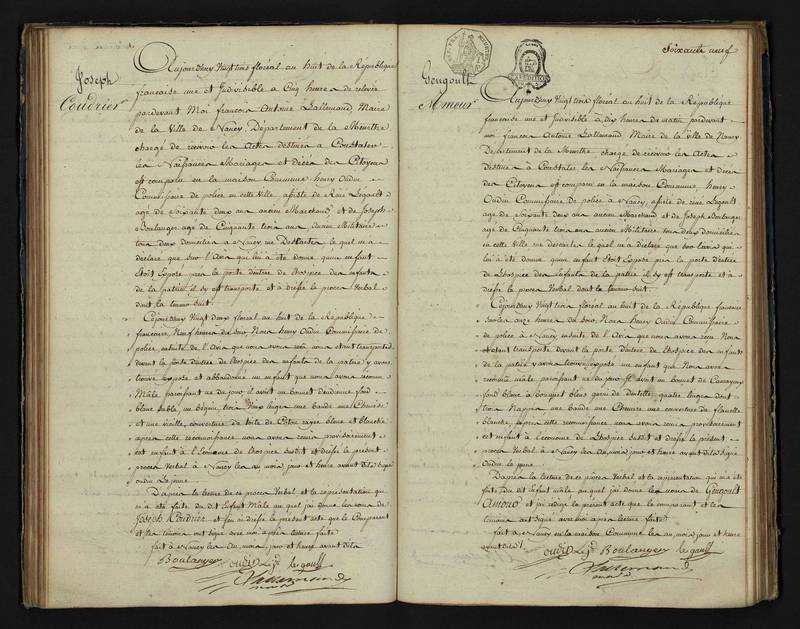 Joseph
Coudrier
Aujourdhuy Vingt trois floréal an huit de la République
francaise une et Indivisible a Cinq heures de relevée
pardevant Moi francois Antoine Lallemand, Maire
de la Ville de Nancy Département de la Meurthe
chargé de recevoir les Actes destinés a Constater
les Naissances Mariages et Décès des Citoyens
est comparu en la maison Commune henry Oudin
Commissaire de police en cette Ville, assisté de René Legault
agé de Soixante deux ans ancien Marchand et de Joseph
Boulanger agé de Cinquante trois ans, ancien Militaire
tous deux domiciliés a Nancy rue lequel m'a
déclaré que sur l'Avis qui lui a été donné qu'un enfant
étoit Exposé près la porte d'entrée de l'hospice des enfants
de la patrie il sy est transporté et a dressé le procès Verbal
dont la teneur suit.
Cejourdhuy Vingt trois floréal an huit de la République
francaise, Neuf heures du Soir, Nous henry Oudin Commissaire de
police, ensuite de l'Avis que nous avons recu nous etant transporté
devant la porte d'entrée de l'hospice des enfants de la patrie y avons
trouvé exposé et abandonné un enfant que nous avons reconnu
Mâle paroissant né du jour, il avoit un bonnet d'indienne fond
blanc sablé, un béguin, trois Vieux linges une bande une Chemise
et une vieille couverture de toile de Coton rayée bleue et blanche
après cette reconnoissance nous avons remis provisoirement
cet enfant à l'Econome de l'hospice susdit et dressé le présent
procès Verbal à Nancy les an, mois, jour et heure avant dits Signé
oudin
D'après la lecture de ce procès Verbal et la représentation qui
m'a été faite du dit Enfant Mâle au quel j'ai donné les noms de
Joseph Coudrier et j'en ai dressé le présent acte que le Comparant
et les témoins ont signé avec moi après lecture faite
fait à Nancy les An, mois, jour et heure avant dits
Boulanger oudin le gault
Lallemand
maire
Soixante neuf
Gengoult
Amour
Aujourdhuy Vingt trois floréal an huit de la République
francaise une et Indivisible a dix heures du matin pardevant
moi francois Antoine Lallemand Maire de la ville de Nancy
Département de la Meurthe chargé de recevoir les Actes
destinés à Constater les Naissances Mariages et décès
des Citoyens est comparu en la maison Commune, henry
Oudin Commissaire de police à Nancy, assisté de rené Legault
agé de Soixante deux ans ancien Marchand et de Joseph Boulanger
agé de Cinquante trois ans ancien Militaire tous deux domiciliés
en cette Ville rue lequel m'a déclaré que sur l'avis qui
lui a été donné qu'un enfant étoit Exposé près la porte d'entrée
de l'hospice des Enfants de la patrie il sy est transporté et a
dressé le procès Verbal dont la teneur suit.
Cejourdhuy Vingt trois floréal an huit de la République francaise
sur les onze heures du soir, Nous henry Oudin Commissaire
de police à Nancy ensuite de l'Avis que nous avons recu Nous
etant transporté devant la porte d'entrée de l'hospice des enfants
de la patrie y avons trouvé exposé un enfant que Nous avons
reconnu mâle paroissant né du jour il avoit un bonnet de
fond blanc à bouquet bleus garni de dentelle, quatre linges dont
trois Nappés une bande une Chemise une couverture de flanelle
blanche, après cette reconnoissance nous avons remis provisoirement
cet enfant à l'économe de l'hospice susdit et dressé le présent
procès Verbal à Nancy les an, mois, jour et heure avant dits Signé
Oudin
D'après la lecture de ce procès Verbal et la représentation qui m'a été
faite du dit Enfant mâle au quel j'ai donné les noms de Gengoult
Amour et j'ai rédigé le présent acte que le comparant et les
témoins ont signé avec moi après lecture faite
fait à Nancy en la maison Commune les an, mois, jour et heure
avant dits
oudin Boulanger le gault
Lallemand
maire